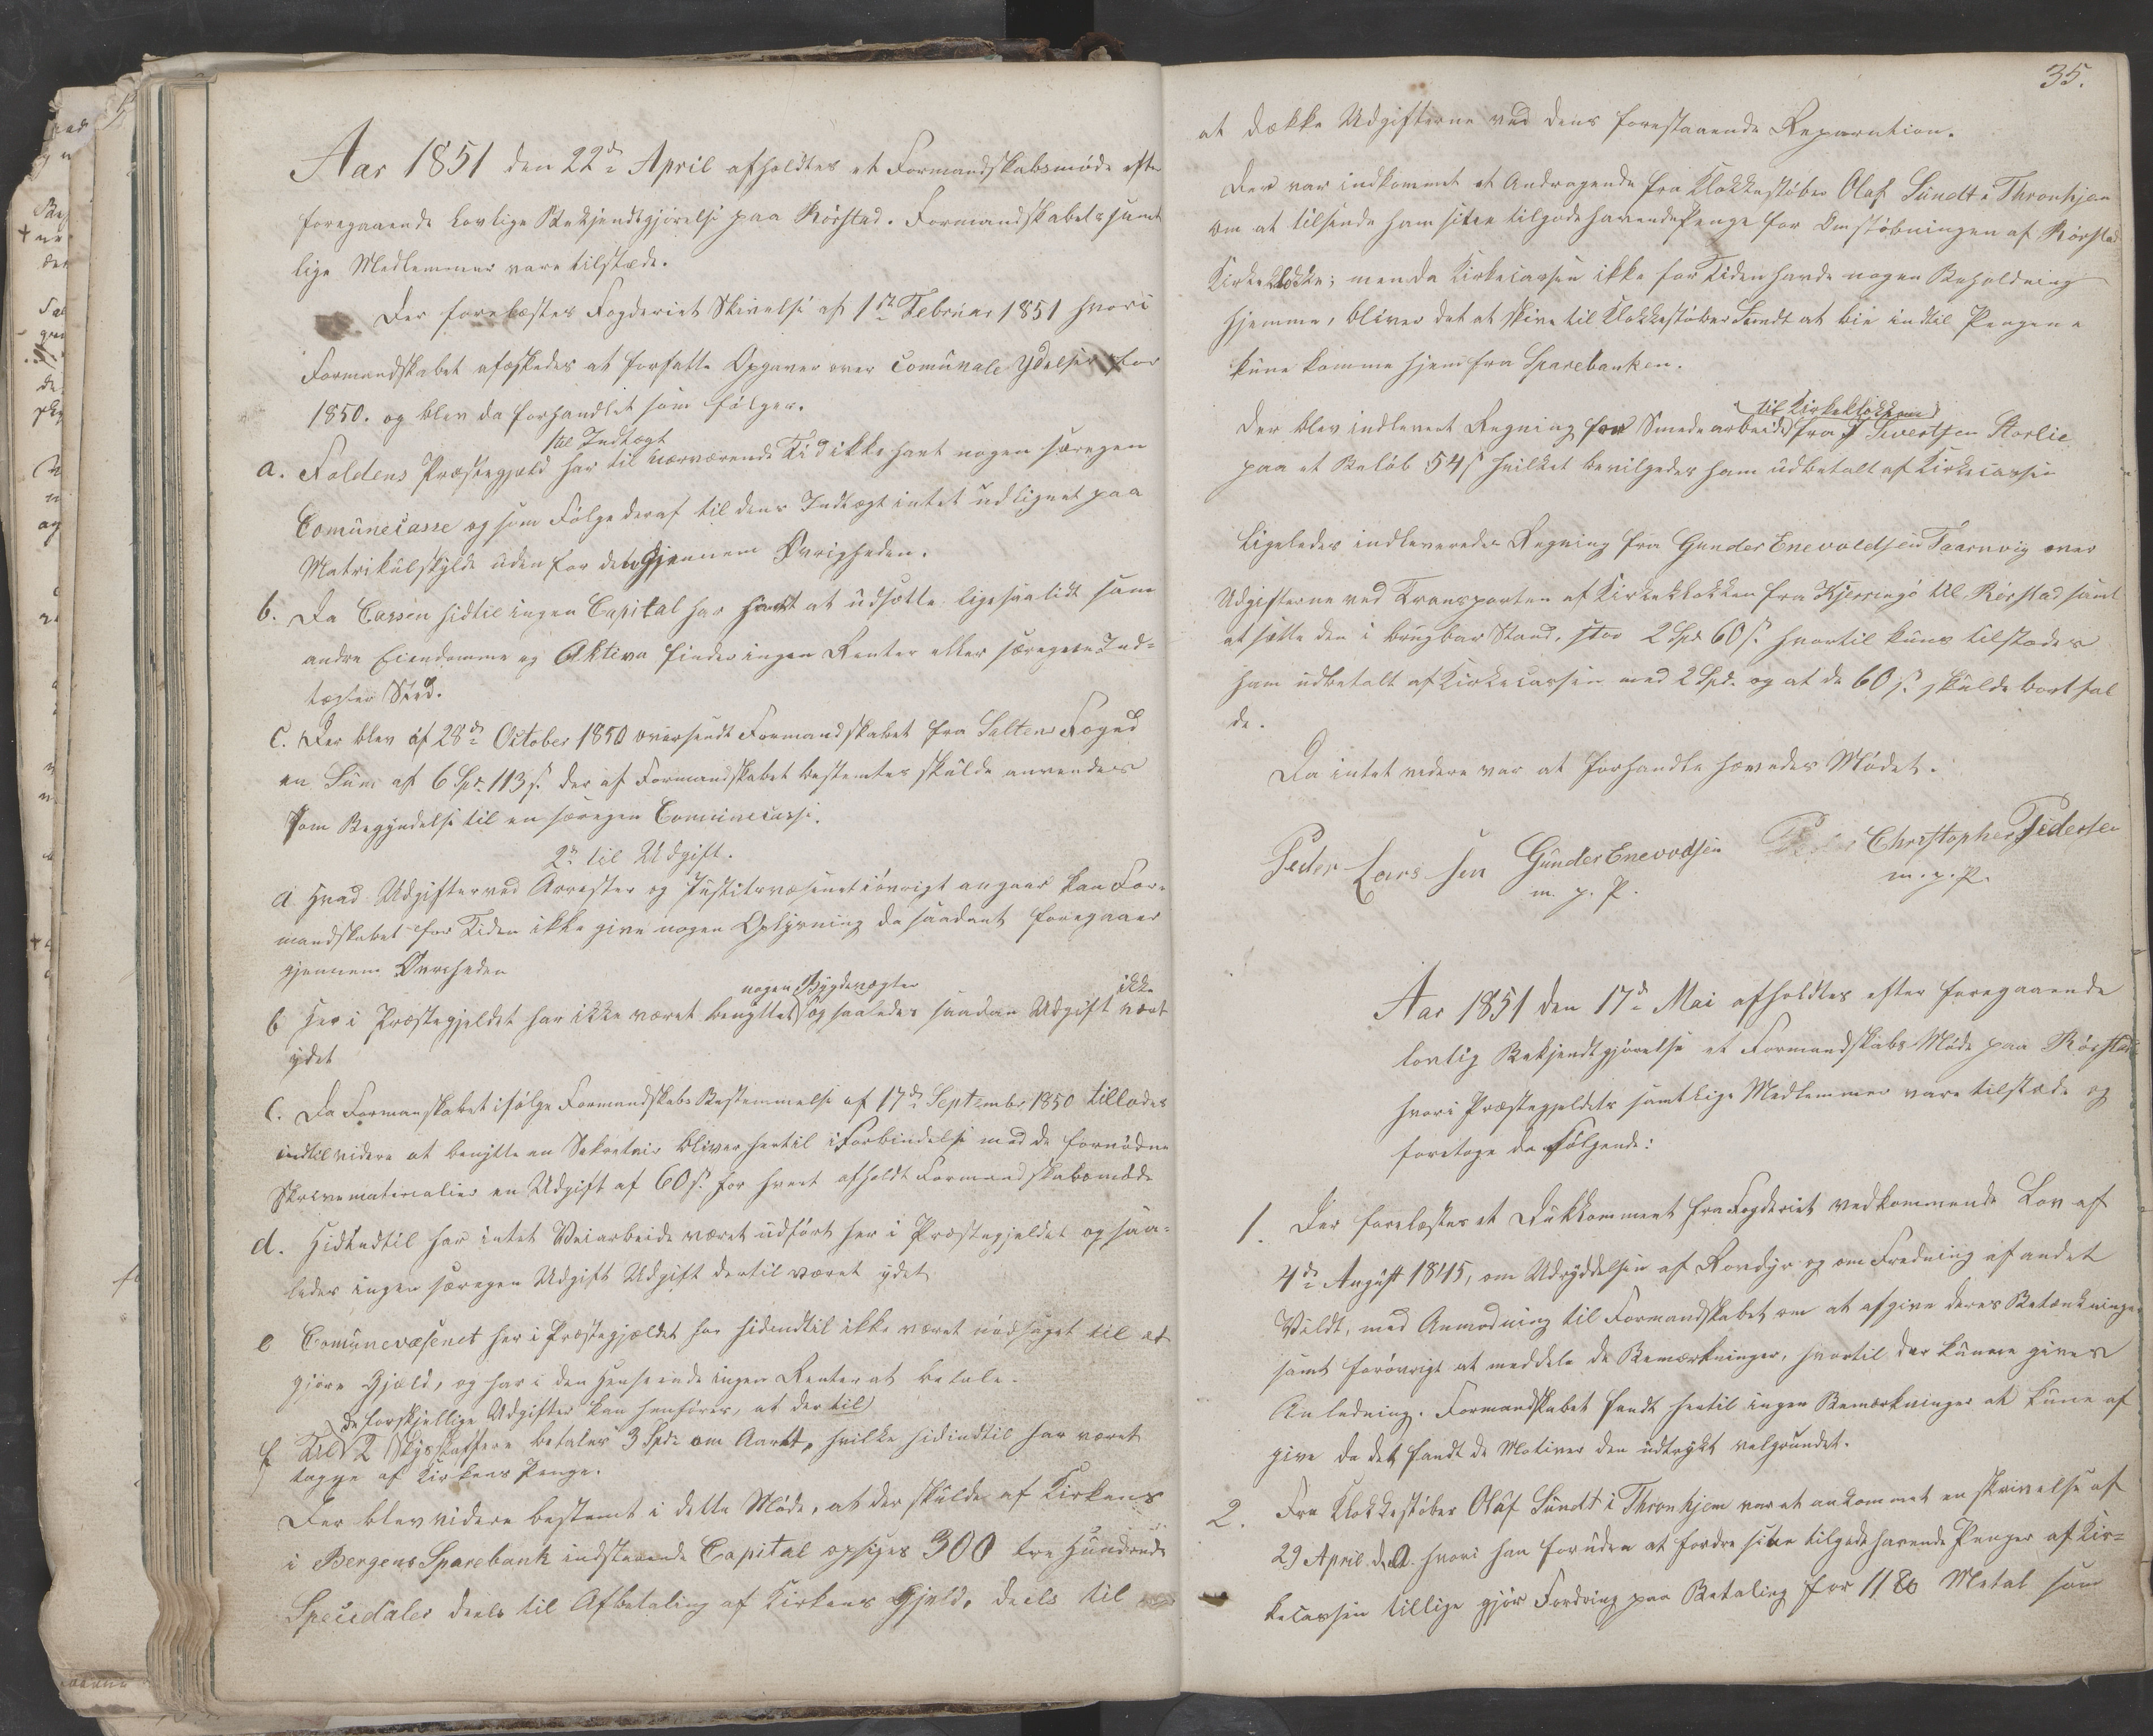 Aar 1851 den 22de April afholdtes et Formandskabsmøde efter
foregaaende lovlige Bekjendtgjørelse paa Rørstad. Formandskabets samt
lige Medlemmer vare tilstæde.
Der forelæstes Fogderiets Skivelse af 1ste Februar 1851 hvori
Formandskabet afæskedes at forfatte Opgaver over Comunale Ydelser for
1850. og blev da forhandlet som følger.
1ste Indtægt
a. Foldens Præstegjæld har til nærværende Tid ikke havt nogen særegen
Comunecasse og som Følge deraf til dens Indtægt intet udlignet paa
Matrikulskyld uden for det gjennem Øvrigheden.
b. Da Cassen hidtil ingen Capital har havt at udsætte ligesaalidt som
andre Eiendomme og Aktiva finder ingen Renter eller særegene Ind-
tægter Sted.
c. Der blev af 28de October 1850 oversendt Formandskabet fra Saltens Foged
en Sum af 6 Spd. 113 s. der af Formandskabet bestemtes skulde anvendes
som Begyndelse til en særegen Comunecasse.
2n til Udgift.
a Hvad Udgifter ved Arrester og Justitsvæsenet iøvrigt angaar kan For-
mandskabet for Tiden ikke give nogen Oplysning da saadant foregaaer
gjennem Øvrigheden
nogen Bygdevægter ikke
b Her i Præstegjeldet har ikke været benyttet og saaledes saadan Udgift vært
ydet
c. Da Formanskabet ifølge Formandskabs Bestemmelse af 17de September 1850 tillodes
indtilvidere at benytte en Sekretair bliver hertil i Forbindelse med de fornødne
Skrivematerialier en Udgift af 60 s. for hvert afholdt Formandskabsmøde
d. Hidindtil har intet Veiarbeide været udført her i Præstegjeldet og saa-
ledes ingen særegen Udgift Udgift dertil været ydet
e Comunevæsenet her i Præstegjældet har hidindtil ikke været nødsaget til at
gjøre Gjæld, og har i den Henseende ingen Renter at betale.
de forskjellige Udgifter kan henføres, at der til
f Til 2 Skydsskaffere betales 3 Spd. om Aaret, hvilke hidindtil har været
tagne af Kirkens Penge.
Der blev videre bestemt i dette Møde, at der skulde af Kirkens
i Bergens Sparebank indstaaende Capital opsiges 300 tre Hundrede
Speciedaler deels til Afbetaling af Kirkens Gjeld, deels til
35.
at dække Udgifterne ved dens forestaaende Reparation.
Der var indkommet et Andragende fra Klokkestøber Olaf Sundt i Thronhjem
om at tilsende ham sitee tilgodehavende Penge for Omstøbningen af Rørstad
Kirkeklokke; men da Kirkecassen ikke for Tiden havde nogen Beholdning
hjemme, bliver det at skive til Klokkestøber Sundt at bie indtil Pengene
kune komme hjem fra Sparebanken.
til Kirkeklokken
Der blev indleveret Regning for Smedearbeide fra J Sivertsen Storlie
paa et Beløb 54 s hvilket bevilgedes ham udbetalt af Kirkecassen
Ligeledes indleveredes Regning fra Gunder Enevoldsen Taarnvig over
Udgifterne ved Transporten af Kirkeklokken fra Kjerringø til Rørstad samt
at sætte den i brugbar Stand, stor 2 Spd 60 s. hvortil kuns tilstodes
ham udbetalt af Kirkecassen med 2 Spd. og at de 60 s. skulde bortfal
de.
Da intet videre var at forhandle hævedes Mødet.
Peder Larssen Gunder Enevodsen Christopher Pedersen
m. p. P. m. p. P.
Aar 1851 den 17de Mai afholdtes efter foregaaende
lovlig Bekjendtgjørelse et Formandskabs Møde paa Rørstad
hvori Præstegjeldets samtlige Medlemmer vare tilstæde og
foretoge da Følgende:
1. Der forelæstes et Dukkoment fra Fogderiet vedkommende Lov af
4de August 1845, om Udryddelsen af Rovdyr og om Fredning af andet
Vildt, med Anmodning til Formandskabet om at afgive deres Betænkninger
samt forøvrigt at meddele de Bemærkninger, hvortil der kunne gives
Anledning. Formandskabet fandt hertil ingen Bemærkninger at kune af
give da det fandt de Motiver den udtrykt velgrundet.
2. Fra Klokkestøber Olaf Sundt i Thronhjem var et ankommet en skrivelse af
29 April d. A. hvori han foruden at fordre sitee tilgodehavende Penger af Kir-
kecassen tillige gjør Fordring paa Betaling for 11 ℔ Metal som